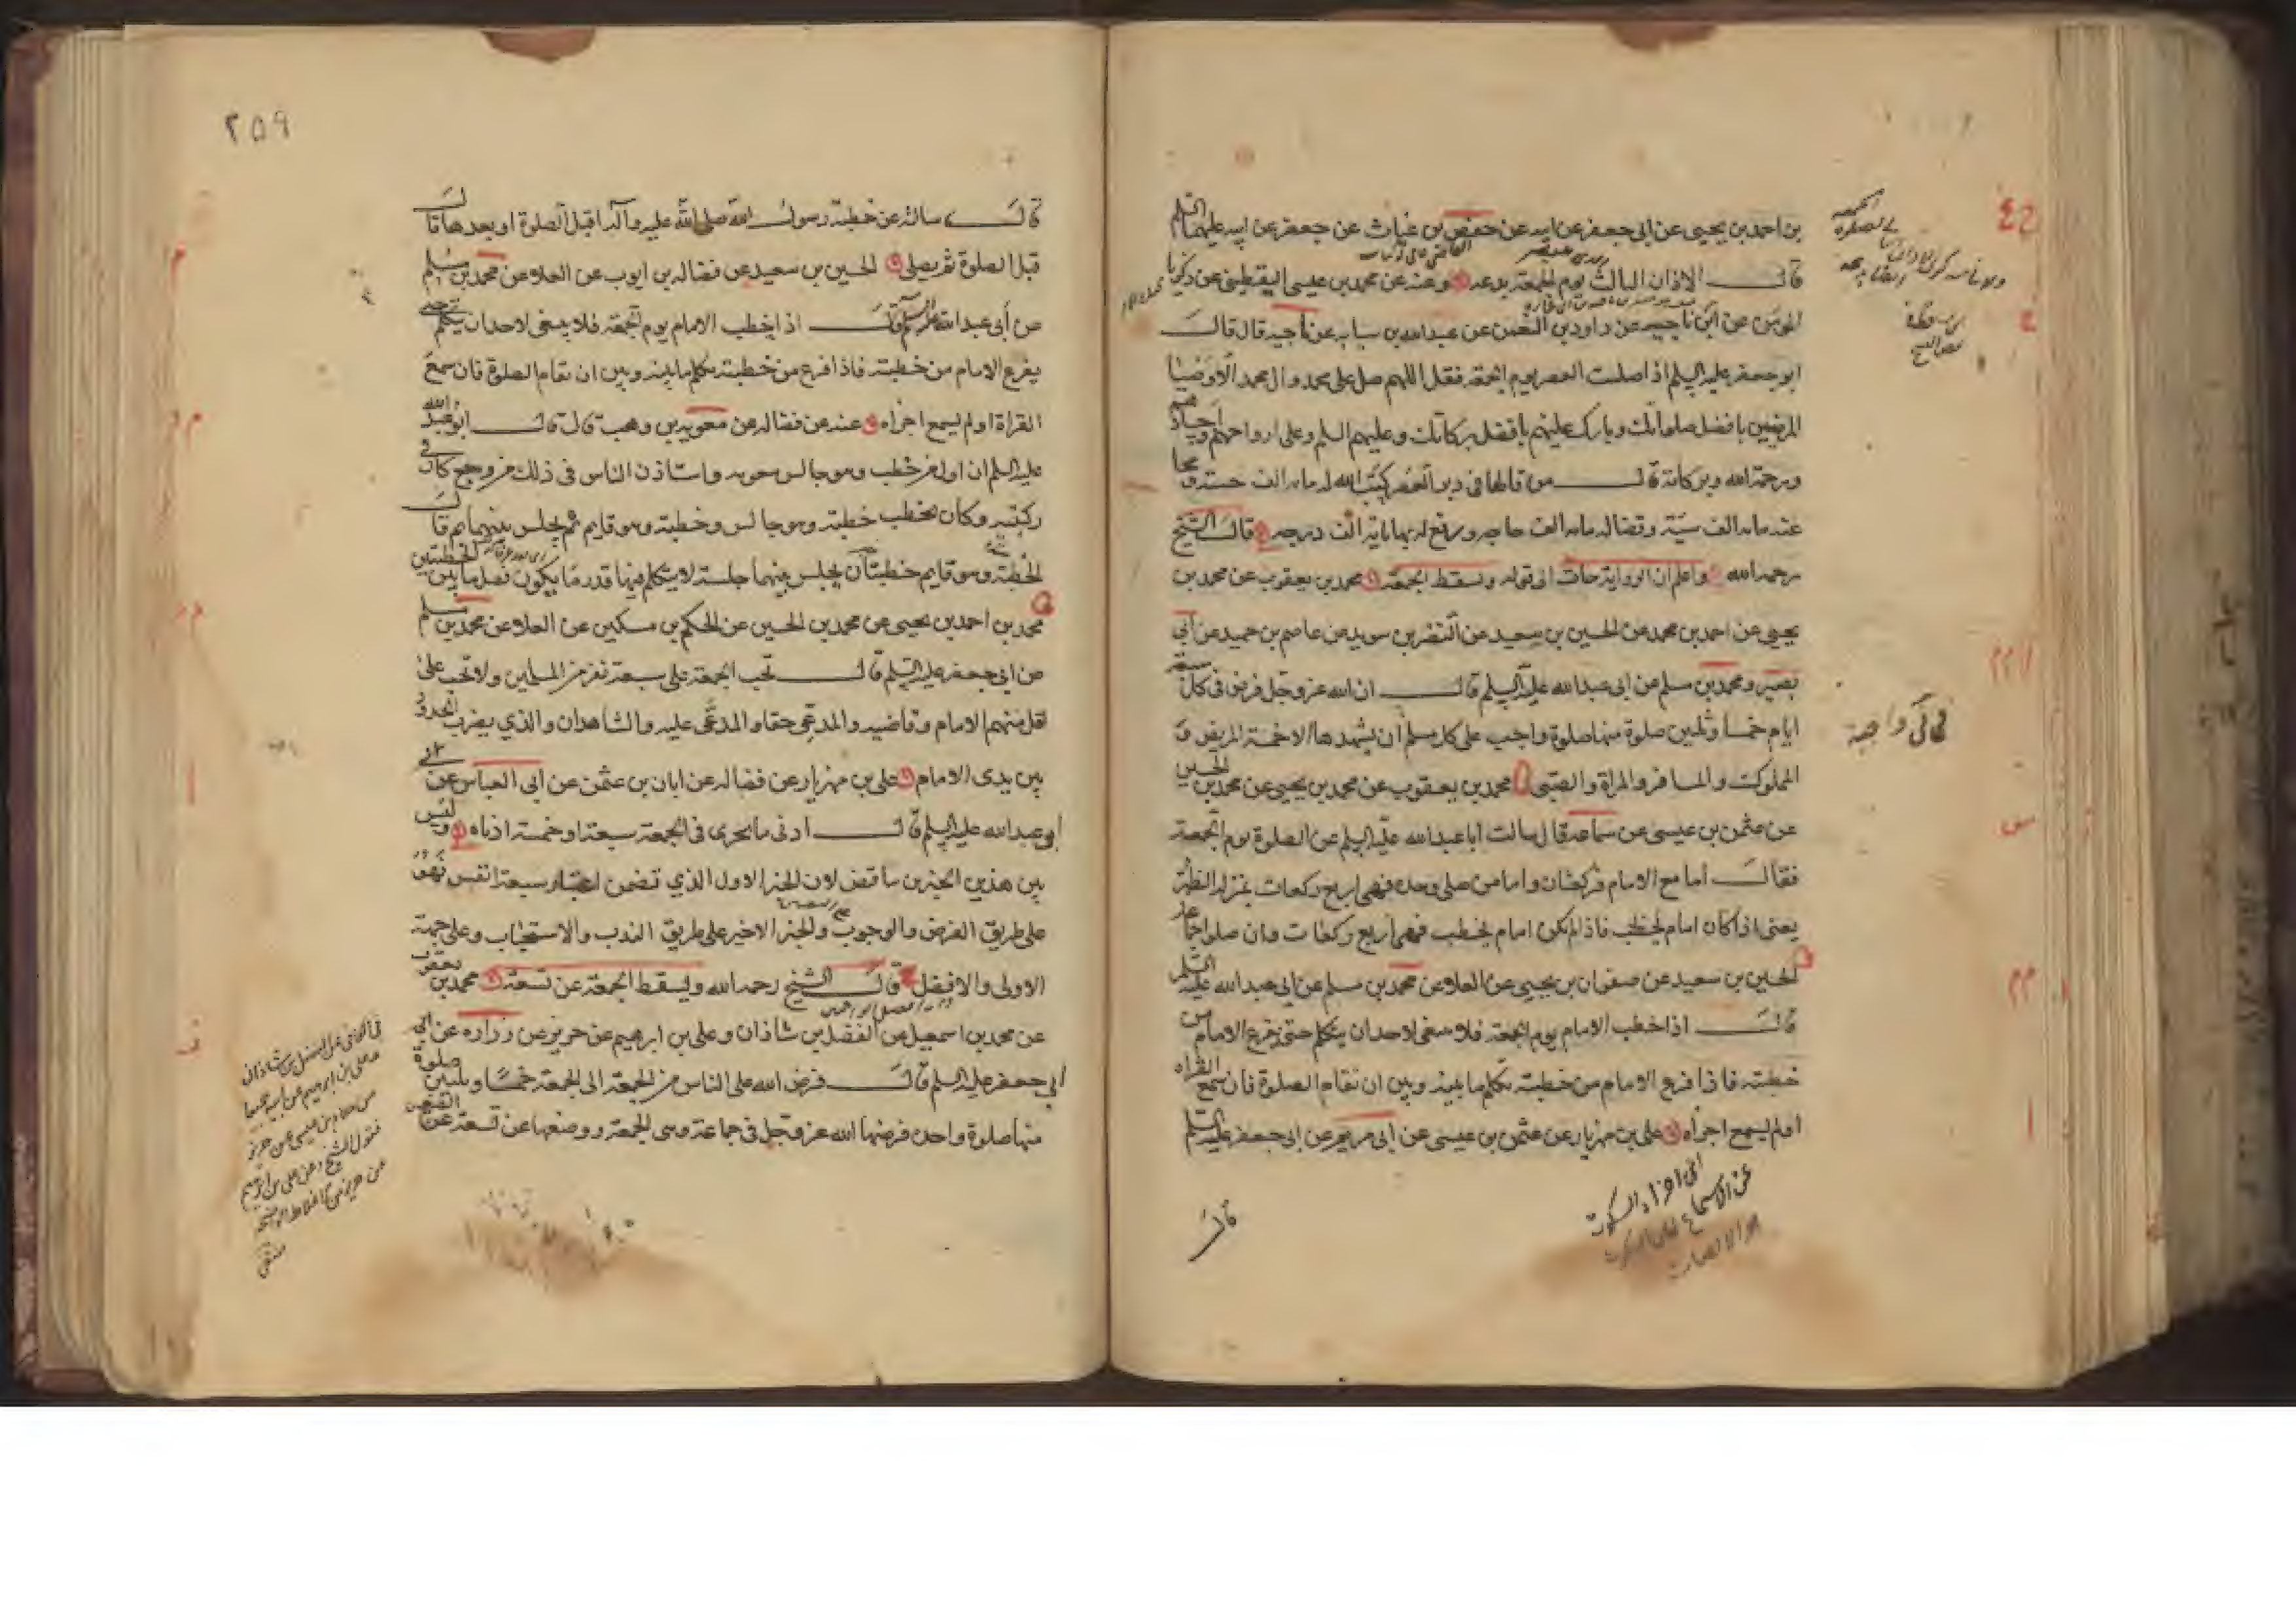 بن احمد بن يحيى عن ابى جعفر عن ابيه عن حفص بن غياث عن جعفر عن ابيه عليهما السلم
قال الاذان الثالث يوم الجمعة بدعه وعنه عن محمد بن عيسى اليقطينى عن زكريا
المؤمن عن ابن ناجيه عن داود بن النعمن عن عبدالله بن سيابه عن ناجيه قال قال
ابو جعفر عليه السلم اذا صليت العصر يوم الجمعة فقل اللهم صل على محمد وال محمد الاوصيا
المرضيين بافضل صلواتك وبارك عليهم بافضل بركاتك وعليهم السلم وعلى ارواحهم واجسادهم
ورحمة الله وبركاته قال من قالها فى دبر العصر كتب الله له مايه الف حسنه ومحا
عنه مايه الف سيئة وقضا له مايه الف حاجه ورفع له بها مايه الف درجه قال الشيخ
رحمه الله واعلم ان الرواية جاءت الى قوله وتسقط الجمعة محمد بن يعقوب عن محمد بن
يحيى عن احمد بن محمد عن الحسين بن سعيد عن النضر بن سويد عن عاصم بن حميد عن أبى
بصير ومحمد بن مسلم عن ابى عبدالله عليه السلم قال ان الله عز وجل فرض فى كل سبعة
ايام خمسا وثلثين صلوة منها صلوة واجب على كل مسلم أن يشهدها الا خمسة المريض و
المملوك والمسافر والمراة والصبى محمد بن يعقوب عن محمد بن يحيى عن محمد بن الحسين
عن عثمن بن عيسى عن سماعه قال سالت ابا عبدالله عليه السلم عن الصلوة يوم الجمعة
فقال أما مع الامام فركعتان واما من صلى وحده فهى اربع ركعات بمنزلة الظهر
يعنى اذا كان امام يخطب فاذا لم يكن امام يخطب فهى أربع ركعات وان صلوا جماعة
الحسين بن سعيد عن صفوان بن يحيى عن العلا عن محمد بن مسلم عن ابى عبد الله عليه السلم
قال اذا خطب الامام يوم الجمعة فلا ينبغى لاحد ان يتكلم حتى يفرغ الامام من
خطبته فاذا فرغ الامام من خطبته تكلم ما بينه وبين ان تقام الصلوة فان سمع القراة
او لم يسمع اجزاه على بن مهزيار عن عثمن بن عيسى عن ابى مريم عن ابى جعفر عليه السلم
قال
فهى واجبة
٢٥٩
قال سالته عن خطبة رسول الله صلى الله عليه وآله اقبل الصلوة او بعدها قال
قبل الصلوة ثم يصلى الحسين بن سعيد عن فضاله بن ايوب عن العلا عن محمد بن مسلم
عن أبى عبد الله عليه السلم قال اذا خطب الامام يوم الجمعة فلا ينبغى لاحد ان يتكلم حتى
يفرغ الامام من خطبته فاذا فرغ من خطبته تكلم ما بينه وبين ان تقام الصلوة فان سمع
القراة او لم يسمع اجزاه عنه عن فضاله عن معوية بن وهب قال قال ابو عبد الله
عليه السلم ان اول من خطب وهو جالس معويه واستاذن الناس فى ذلك من وجع كان فى
ركبتيه وكان يخطب خطبة وهو جالس وخطبة وهو قايم ثم يجلس بينهما ثم قال
الخطبة وهو قايم خطبتان يجلس بينهما جلسة لا يتكلم فيها قدر ما يكون فصل ما بين الخطبتين
محمد بن احمد بن يحيى عن محمد بن الحسين عن الحكم بن مسكين عن العلا عن محمد بن مسلم
عن ابى جعفر عليه السلم قال تجب الجمعة على سبعة نفر من المسلمين ولا تجب على
اقل منهم الامام وقاضيه والمدعى حقا والمدعى عليه والشاهدان والذي يضرب الحدود
بين يدى الامام على بن مهزيار عن فضاله عن ابان بن عثمن عن ابى العباس عن
ابى عبدالله عليه السلم قال ادنى ما يجزى فى الجمعة سبعة او خمسة ادناه وليس
بين هذين الخبرين تناقض لان الخبر الاول الذي تضمن اعتبار سبعة انفس فهو
على طريق الفرض والوجوب والخبر الاخير على طريق الندب والاستحباب وعلى جهة
الاولى والافضل قال الشيخ رحمه الله وتسقط الجمعة عن تسعة محمد بن يعقوب
عن محمد بن اسمعيل عن الفضل بن شاذان وعلى بن ابرهيم عن حريز عن زراره عن ابى
ابى جعفر عليه السلم قال فرض الله على الناس من الجمعة الى الجمعة خمسا وثلثين صلوة
منها صلوة واحدة فرضها الله عز وجل فى جماعة وهى الجمعة ووضعها عن تسعة عن الصغير